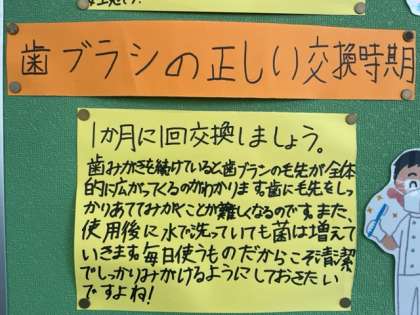 歯ブラシの正しい交換時期
1か月に1回交換しましょう。
歯みがきを続けていると歯ブラシの毛先が全体
的に広がってくるのがわかります歯に毛先をしっ
かりあててみがくことが難しくなるのです。また、
使用後に水で洗っていても菌は増えて
いきます。毎日使うものだからこそ清潔
でしっかりみがけるようにしておきたい
ですよね!